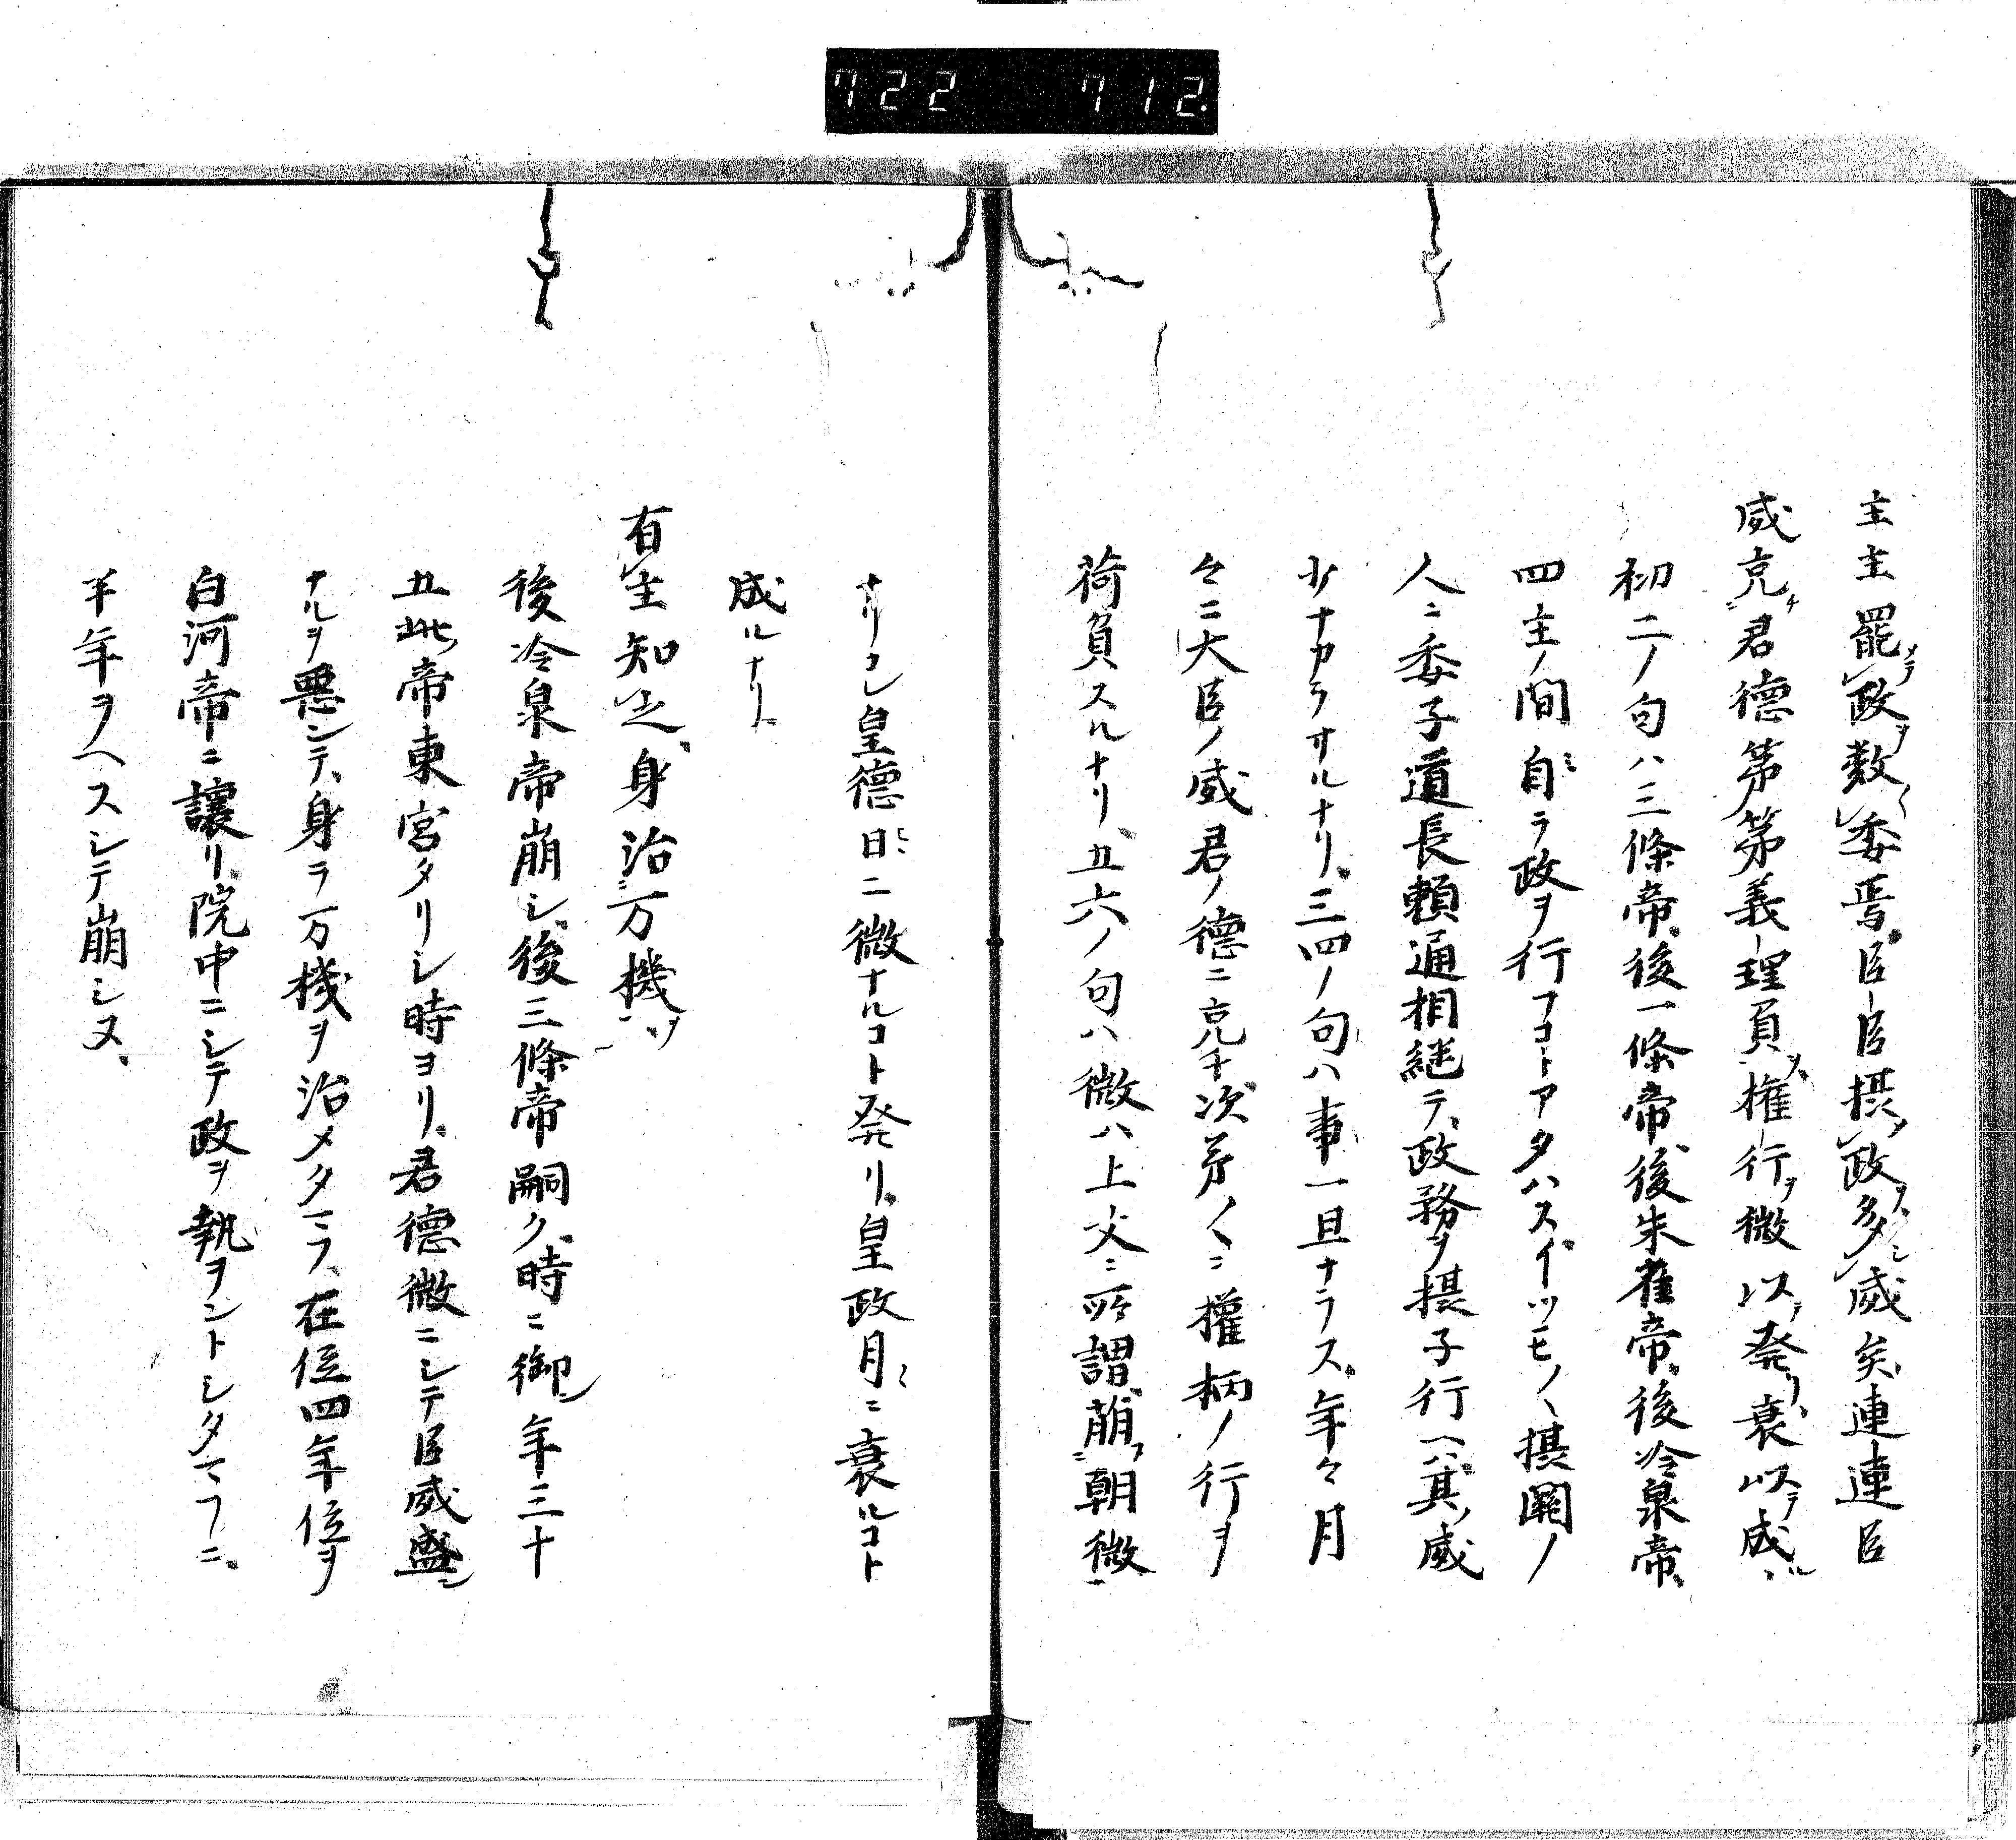 722 712.
主主罷メテ政ヲ数〱委焉臣臣摂ノ政ヲ多シ威矣連連臣
威克チ君徳第第義理負ヲ権行ヲ微以テ発リ衰以テ成ル
初二ノ句ハ三條帝、後一條帝、後朱雀帝、後冷泉帝、
四主ノ間自ミラ政ヲ行フコトアタハス、イツモ〱摂関ノ
人ニ委子道長頼通相継テ、政務ヲ摂子行ヘハ、其威
少ナカラサルナリ、三四ノ句ハ事一旦ナラス、年々月
々ニ大臣ノ威君ノ徳ニ克チ次第〱ニ權柄ノ行ヲ
荷負スルナリ、五六ノ句ハ微ハ上文ニ所謂萠フ朝微ニ
ナリコレ皇徳日ヒニニ微ナルコト発リ、皇政月〱ニ衰ルコト
成ルナリ、
有主知之、身治万機ヲ
後冷泉帝崩シ、後三條帝嗣ク、時ニ御年三十
五此帝東宮タリシ時ヨリ、君徳微ニシテ臣威盛ン
ナルヲ悪ンテ、身ラ万機ヲ治メタマフ、在位四年位ヲ
白河帝ニ譲リ、院中ニシテ政ヲ執ヲントシタマフニ、
半年ヲヘスシテ崩シヌ、